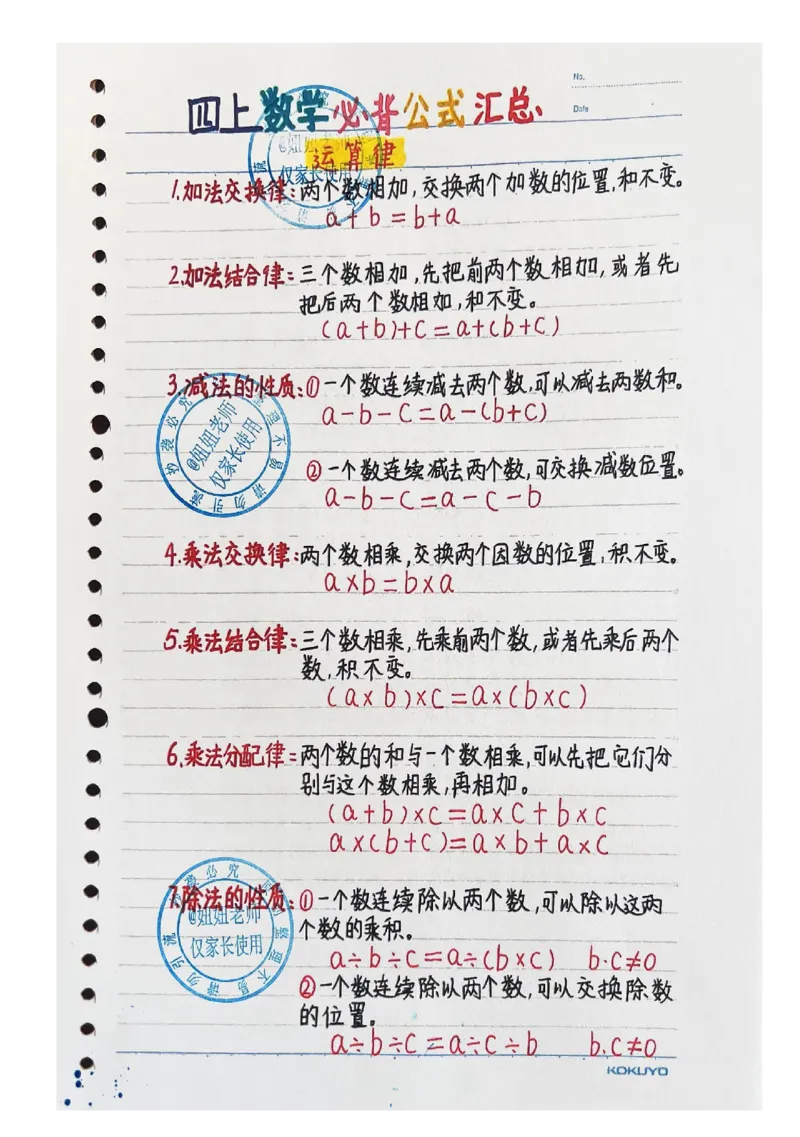 No.
四上数学必背公式汇总
Date
运算律
1.加法交换律:两个数相加,交换两个加数的位置,和不变。
a+b=b+a
2.加法结合律:三个数相加,先把前两个数相加,或者先
把后两个数相加,和不变。
(a+b)+c=a+(b+c)
3.减法的性质:①一个数连续减去两个数,可以减去两数和。
a-b-c=a-(b+c)
②一个数连续减去两个数,可交换减数位置。
a-b-c=a-c-b
4.乘法交换律:两个数相乘,交换两个因数的位置,积不变。
a×b=b×a
5.乘法结合律:三个数相乘,先乘前两个数,或者先乘后两个
数,积不变。
(a×b)×c=a×(b×c)
6.乘法分配律:两个数的和与一个数相乘,可以先把它们分
别与这个数相乘,再相加。
(a+b)×c=a×c+b×c
a×(b+c)=a×b+a×c
7.除法的性质:①一个数连续除以两个数,可以除以这两
个数的乘积。
a÷b÷c=a÷(b×c) b.c≠0
②一个数连续除以两个数,可以交换除数
的位置。
a÷b÷c=a÷c÷b b.c≠0
KOKUYO
@妞妞老师
仅家长使用
@妞妞老师
仅家长使用
仅家长使用